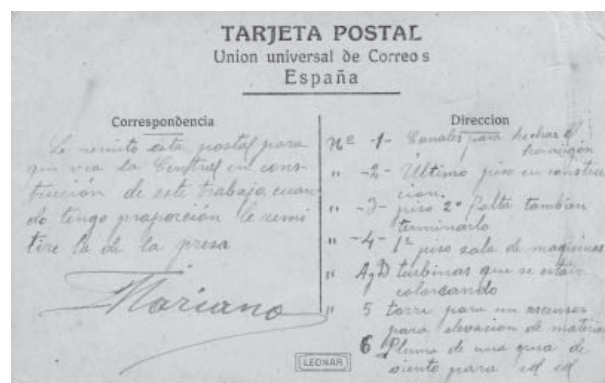 TARJETA POSTAL
Union universal de Correos
España
Correspondencia
Le remito esta postal para
que vea la Central en cons-
trucción de este trabajo cuan-
do tengo proporción le remi
tire la de la presa
Mariano
Direccion
Nº -1- Canales para hechar el
hormigón
" -2- Último piso en constru
cion.
" -3- piso 2º falta tambien
terminarlo
" -4- 1º piso sala de maquinas
" A y B turbinas que se están
colocando
" 5 torre para un ascensor
para elevacion de material
6 Pluma de una grua de
viento para id id
LEONAR